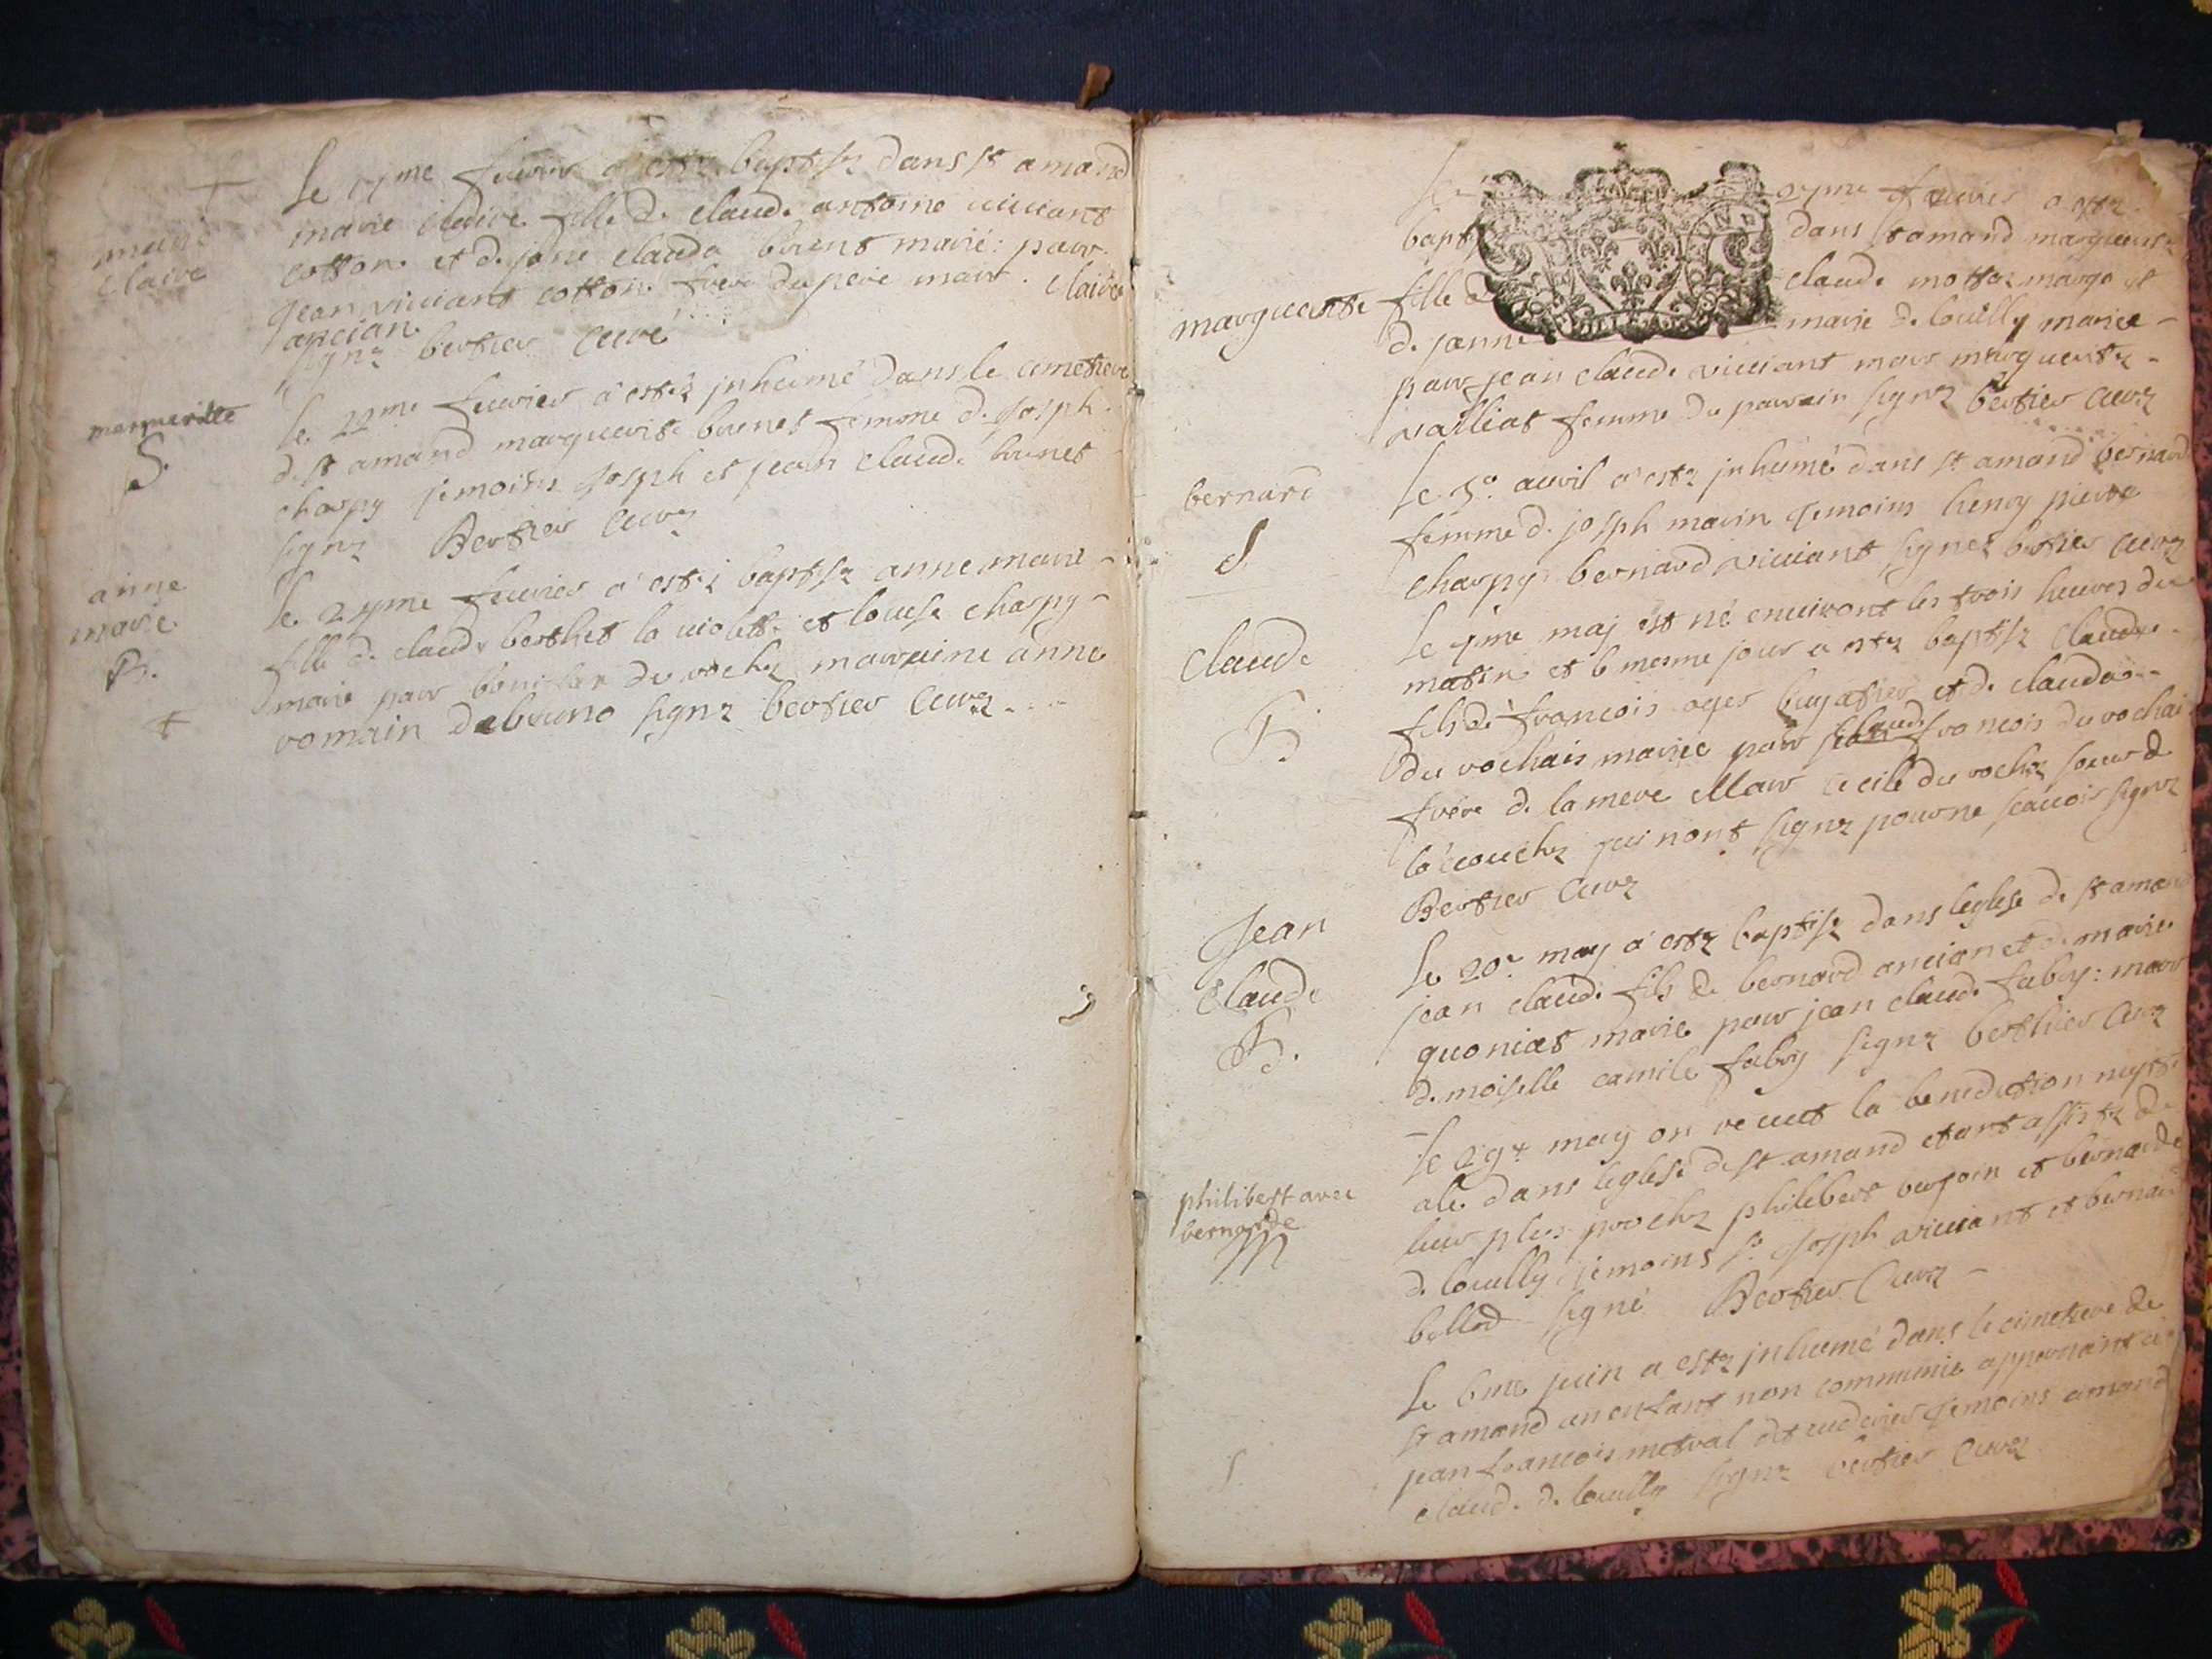 Le 17me feuvrier a estez baptisz dans st amand
marie claire fille de claude antoine vivviant
cotton et de jane claude brunet mariés: parr.
Jean vivviant cotton frere du pere marr. claire
ancian
signz bertier curé
marie
claire
Le 22me feuvrier a estez jnhumé dans le cimetiere
de st amand marguerite brunet femme de Joseph
charpy temoins Joseph et jean claude brunet
signz Bertier curez
marguerite
S.
feuvrier a estez baptisz anne marie
fille de claude berthet la violette et louise charpy
marie parr du rochez marraine anne
romain signz bertier curez
anne
marie
B.
27me feuvrier a estez
bapt dans st amand marguerite
marguerite
fille de claude mottez et
de janne marie de louilly mariez
parr jean claude vivviant marr marguerite
valliat femme du parrain signz bertier curez
Le 5e avvril a estez jnhumé dans st amand bernard
femme de joseph marin temoins henry pierre
charpy bernard vivviant signez bertier curez
bernard
S
Le 9me maj est né environt les trois heures du
matin et le mesme jour a estez baptisz claude
fils de francois et de claudine
du rochais mariée parr claude francois du rochai
frere de la mere Marr cecile du rochez soeur de
l'acouchez qui nont signz pour ne scavoir signz
Bertier curez
claude
B
Le 20e may a estez baptisz dans leglise de st amand
jean claude fils de bernard ancian et de marie
quoniat marie parr jean claude fabry: marr
demoiselle camile fabry signz berthier curez
Jean
claude
B.
Le 29e may on receut la benediction nupti
ale dans leglise de st amand etant assistz de
leur plus prochz philibert et bernarde
de louilly temoins sr Joseph vivviant et bernard
bellod signé Bertier Curez
philibert avec
bernarde
M
Le 6me juin a estez jnhumé dans le cimetiere de
st amand un enfant non communié appartenant a
jean francois metral dit temoins amand
claude de louilly signz bertier curez
S